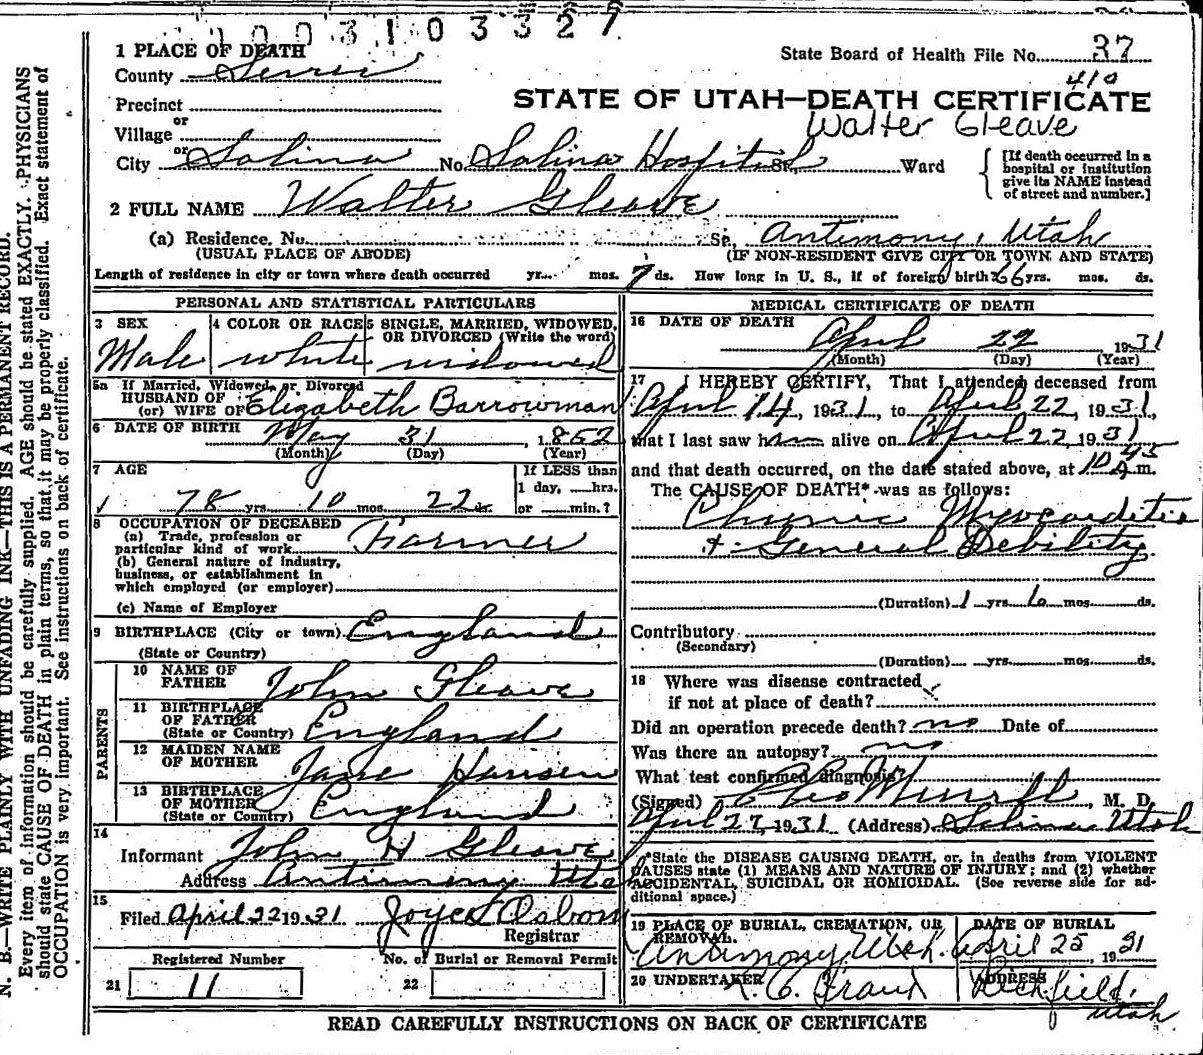 1003103327
1 PLACE OF DEATH
State Board of Health File No. 37
County Sevier
410
STATE OF UTAH—DEATH CERTIFICATE
Precinct
or
Village
Walter Gleave
or
City Salina No. Salina Hospital St. Ward
[If death occurred in a hospital or institution give its NAME instead of street and number.]
2 FULL NAME Walter Gleave
(a) Residence, No. St. Antimony, Utah
(USUAL PLACE OF ABODE) (IF NON-RESIDENT GIVE CITY OR TOWN AND STATE)
Length of residence in city or town where death occurred yrs. mos. 7 ds. How long in U. S., if of foreign birth? 66 yrs. mos. ds.
PERSONAL AND STATISTICAL PARTICULARS
3 SEX
Male
4 COLOR OR RACE
white
5 SINGLE, MARRIED, WIDOWED, OR DIVORCED (Write the word)
widowed
5a If Married, Widowed, or Divorced
HUSBAND OF
(or) WIFE OF Elizabeth Barrowman
6 DATE OF BIRTH May 31, 1852
(Month) (Day) (Year)
7 AGE
78 yrs. 10 mos. 22 ds.
If LESS than
1 day, hrs.
or min.?
8 OCCUPATION OF DECEASED
(a) Trade, profession or
particular kind of work Farmer
(b) General nature of industry,
business, or establishment in
which employed (or employer)
(c) Name of Employer
9 BIRTHPLACE (City or town) England
(State or Country)
PARENTS
10 NAME OF
FATHER John Gleave
11 BIRTHPLACE
OF FATHER
(State or Country) England
12 MAIDEN NAME
OF MOTHER Jane Hansen
13 BIRTHPLACE
OF MOTHER
(State or Country) England
14
Informant John H Gleave
Address Antimony Utah
15
Filed April 22 1931 Joyce Osborn
Registrar
Registered Number No. of Burial or Removal Permit
21 11 22
MEDICAL CERTIFICATE OF DEATH
16 DATE OF DEATH
April 22 1931
(Month) (Day) (Year)
17 I HEREBY CERTIFY, That I attended deceased from
April 14, 1931, to April 22, 1931,
that I last saw him alive on April 22, 1931
and that death occurred, on the date stated above, at 10 45 A.m.
The CAUSE OF DEATH* was as follows:
Chronic Myocarditis
+ General Debility
(Duration) 1 yrs. 6 mos. ds.
Contributory
(Secondary)
(Duration) yrs. mos. ds.
18 Where was disease contracted
if not at place of death?
Did an operation precede death? no Date of
Was there an autopsy? no
What test confirmed diagnosis?
(Signed) M. D.
April 27, 1931 (Address) Salina Utah
*State the DISEASE CAUSING DEATH, or, in deaths from VIOLENT
CAUSES state (1) MEANS AND NATURE OF INJURY; and (2) whether
ACCIDENTAL, SUICIDAL OR HOMICIDAL. (See reverse side for ad-
ditional space.)
19 PLACE OF BURIAL, CREMATION, OR
REMOVAL.
Antimony, Utah.
DATE OF BURIAL
April 25, 1931
20 UNDERTAKER
ADDRESS
Richfield, Utah
READ CAREFULLY INSTRUCTIONS ON BACK OF CERTIFICATE
N. B.—WRITE PLAINLY WITH UNFADING INK—THIS IS A PERMANENT RECORD.
Every item of information should be carefully supplied. AGE should be stated EXACTLY. PHYSICIANS
should state CAUSE OF DEATH in plain terms, so that it may be properly classified. Exact statement of
OCCUPATION is very important. See instructions on back of certificate.